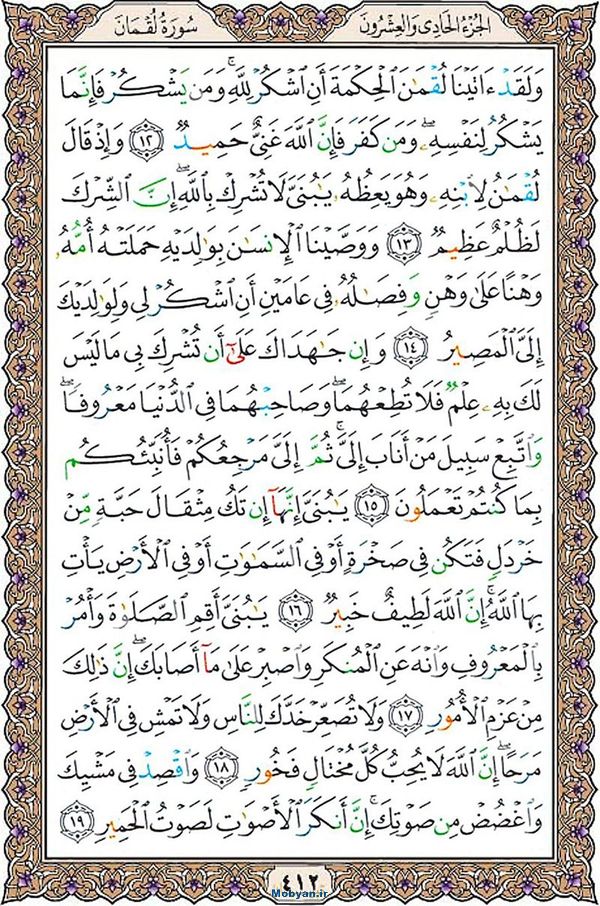 الجزء الحادي والعشرون
سورة لقمان
وَلَقَدْ ءَاتَيْنَا لُقْمَـٰنَ ٱلْحِكْمَةَ أَنِ ٱشْكُرْ لِلَّهِ ۚ وَمَن يَشْكُرْ فَإِنَّمَا
يَشْكُرُ لِنَفْسِهِۦ ۖ وَمَن كَفَرَ فَإِنَّ ٱللَّهَ غَنِىٌّ حَمِيدٌ ١٢ وَإِذْ قَالَ
لُقْمَـٰنُ لِٱبْنِهِۦ وَهُوَ يَعِظُهُۥ يَـٰبُنَىَّ لَا تُشْرِكْ بِٱللَّهِ ۖ إِنَّ ٱلشِّرْكَ
لَظُلْمٌ عَظِيمٌ ١٣ وَوَصَّيْنَا ٱلْإِنسَـٰنَ بِوَٰلِدَيْهِ حَمَلَتْهُ أُمُّهُۥ
وَهْنًا عَلَىٰ وَهْنٍ وَفِصَـٰلُهُۥ فِى عَامَيْنِ أَنِ ٱشْكُرْ لِى وَلِوَٰلِدَيْكَ
إِلَىَّ ٱلْمَصِيرُ ١٤ وَإِن جَـٰهَدَاكَ عَلَىٰٓ أَن تُشْرِكَ بِى مَا لَيْسَ
لَكَ بِهِۦ عِلْمٌ فَلَا تُطِعْهُمَا ۖ وَصَاحِبْهُمَا فِى ٱلدُّنْيَا مَعْرُوفًا ۖ
وَٱتَّبِعْ سَبِيلَ مَنْ أَنَابَ إِلَىَّ ۚ ثُمَّ إِلَىَّ مَرْجِعُكُمْ فَأُنَبِّئُكُم
بِمَا كُنتُمْ تَعْمَلُونَ ١٥ يَـٰبُنَىَّ إِنَّهَآ إِن تَكُ مِثْقَالَ حَبَّةٍ مِّنْ
خَرْدَلٍ فَتَكُن فِى صَخْرَةٍ أَوْ فِى ٱلسَّمَـٰوَٰتِ أَوْ فِى ٱلْأَرْضِ يَأْتِ
بِهَا ٱللَّهُ ۚ إِنَّ ٱللَّهَ لَطِيفٌ خَبِيرٌ ١٦ يَـٰبُنَىَّ أَقِمِ ٱلصَّلَوٰةَ وَأْمُرْ
بِٱلْمَعْرُوفِ وَٱنْهَ عَنِ ٱلْمُنكَرِ وَٱصْبِرْ عَلَىٰ مَآ أَصَابَكَ ۖ إِنَّ ذَٰلِكَ
مِنْ عَزْمِ ٱلْأُمُورِ ١٧ وَلَا تُصَعِّرْ خَدَّكَ لِلنَّاسِ وَلَا تَمْشِ فِى ٱلْأَرْضِ
مَرَحًا ۖ إِنَّ ٱللَّهَ لَا يُحِبُّ كُلَّ مُخْتَالٍ فَخُورٍ ١٨ وَٱقْصِدْ فِى مَشْيِكَ
وَٱغْضُضْ مِن صَوْتِكَ ۚ إِنَّ أَنكَرَ ٱلْأَصْوَٰتِ لَصَوْتُ ٱلْحَمِيرِ ١٩
٤١٢
Mobyan.ir